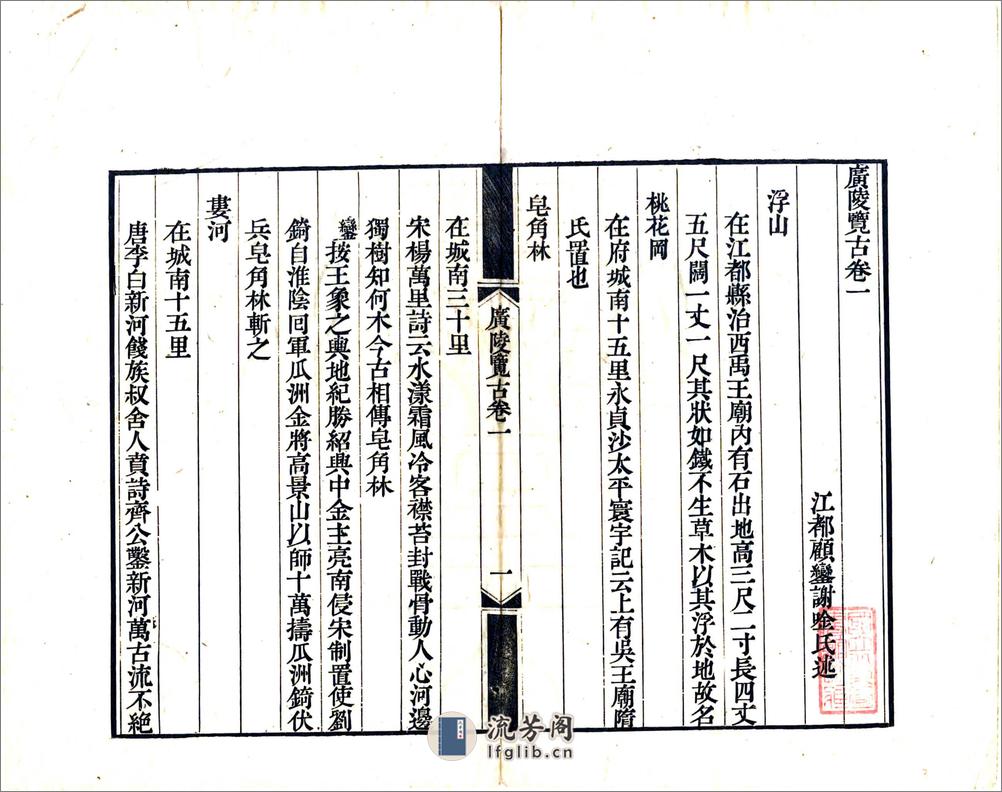 廣陵覽古卷一
江都顧鑾謝唫氏述
浮山
在江都縣治西禹王廟內有石出地高三尺二寸長四丈
五尺闊一丈一尺其狀如鐵不生草木以其浮於地故名
桃花岡
在府城南十五里永貞沙太平寰宇記云上有吳王廟隋
氏置也
皂角林
廣陵覽古卷一
一
在城南三十里
宋楊萬里詩云水漾霜風冷客襟苔封戰骨動人心河邊
獨樹知何木今古相傳皂角林
鑾按王象之輿地紀勝紹興中金主亮南侵宋制置使劉
錡自淮陰囘軍瓜洲金將高景山以師十萬擣瓜洲錡伏
兵皂角林斬之
婁河
在城南十五里
唐李白新河餞族叔舍人賁詩齊公鑿新河萬古流不絕
流芳阁
lfglib.cn